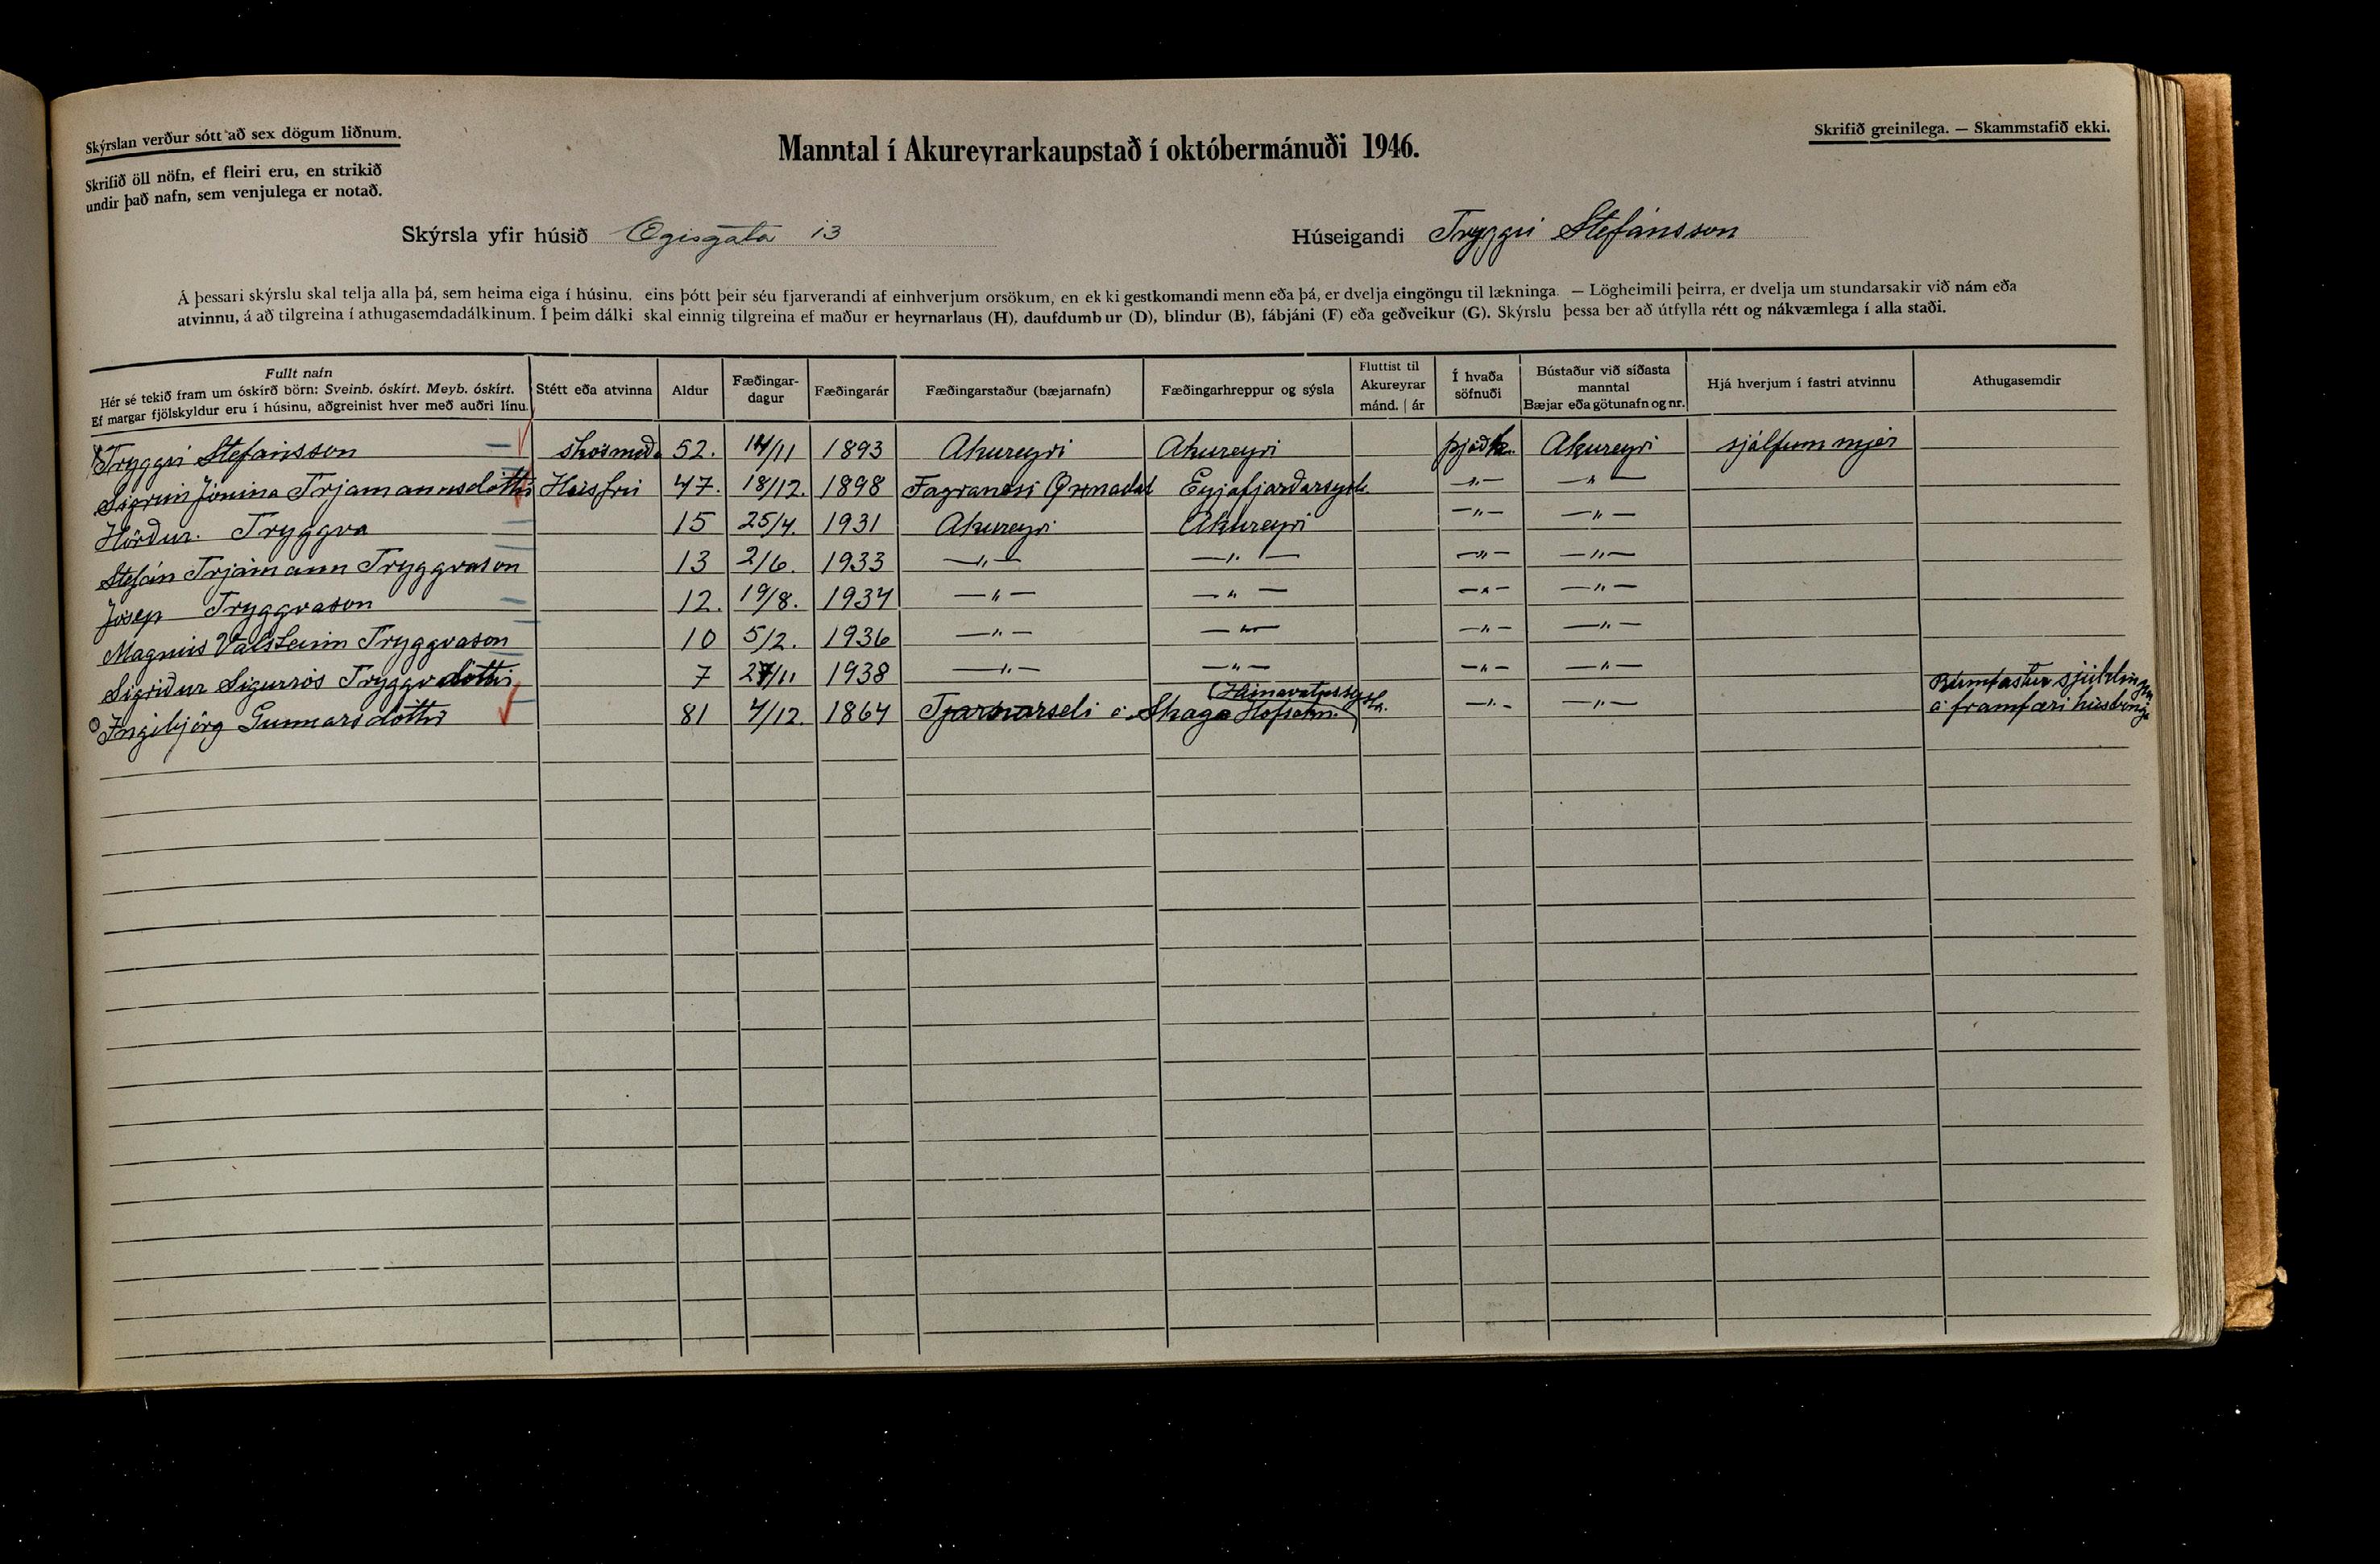 Skýrslan verður sótt að sex dögum liðnum.
Skrifið öll nöfn, ef fleiri eru, en strikið
undir það nafn, sem venjulega er notað.
Manntal í Akureyrarkaupstað í októbermánuði 1946.
Skrifið greinilega. — Skammstafið ekki.
Skýrsla yfir húsið Ægisgata 13
Húseigandi Tryggvi Stefánsson
Á þessari skýrslu skal telja alla þá, sem heima eiga í húsinu, eins þótt þeir séu fjarverandi af einhverjum orsökum, en ekki gestkomandi menn eða þá, er dvelja eingöngu til lækninga. — Lögheimili þeirra, er dvelja um stundarsakir við nám eða
atvinnu, á að tilgreina í athugasemdadálkinum. Í þeim dálki skal einnig tilgreina ef maður er heyrnarlaus (H), daufdumbur (D), blindur (B), fábjáni (F) eða geðveikur (G). Skýrslu þessa ber að útfylla rétt og nákvæmlega í alla staði.
Fullt nafn
Hér sé tekið fram um óskírð börn: Sveinb. óskírt. Meyb. óskírt.
Ef margar fjölskyldur eru í húsinu, aðgreinist hver með auðri línu.
Stétt eða atvinna
Aldur
Fæðingar-
dagur
Fæðingarár
Fæðingarstaður (bæjarnafn)
Fæðingarhreppur og sýsla
Fluttist til
Akureyrar
mánd. | ár
Í hvaða
söfnuði
Bústaður við síðasta
manntal
Bæjar eða götunafn og nr.
Hjá hverjum í fastri atvinnu
Athugasemdir
Tryggvi Stefánsson skósmið. 52. 14/11 1893 Akureyri Akureyri þjóðk. Akureyri sjálfum mjer
Sigrún Jónína Trjámannsdóttir Húsfrú 47. 18/12. 1898 Fagranesi Öxnadal Eyjafjarðarsysl. —"— —"—
Hörður. Tryggva 15 25/4. 1931 Akureyri Akureyri —"— —"—
Stefán Trjámann Tryggvason 13 2/6. 1933 —"— —"— —"— —"—
Jósep Tryggvason 12. 19/8. 1934 —"— —"— —"— —"—
Magnús Valsteinn Tryggvason 10 5/2. 1936 —"— —"— —"— —"—
Sigríður Sigurrós Tryggvadóttir 7 27/11 1938 —"— —"— —"— —"—
Ingibjörg Gunnarsdóttir 81 4/12. 1864 Tjarnarseli á Skaga Hofsahr. (Húnavatnssýsla. —"— —"— Rúmfastur sjúklingur
á framfæri húsbónda